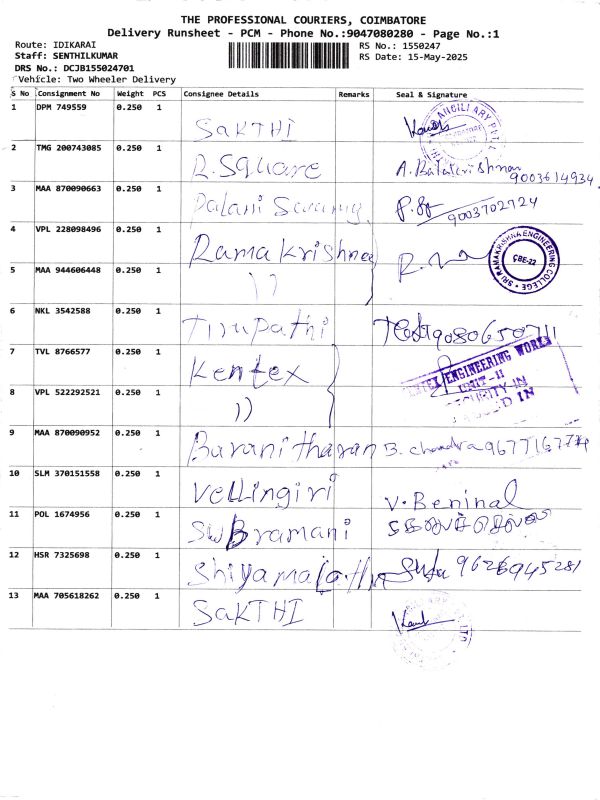 THE PROFESSIONAL COURIERS, COIMBATORE
Delivery Runsheet - PCM - Phone No.:9047080280 - Page No.:1
Route: IDIKARAI
RS No.: 1550247
Staff: SENTHILKUMAR
RS Date: 15-May-2025
DRS No.: DCJB155024701
Vehicle: Two Wheeler Delivery
S No Consignment No Weight PCS Consignee Details Remarks Seal & Signature
1 DPM 749559 0.250 1 SaKTHI
2 TMG 200743085 0.250 1 R. Square A. Balakrishnan 9003614934
3 MAA 870090663 0.250 1 Palani 9003702724
4 VPL 228098496 0.250 1 Rama Krishnea
SRI RAMAKRISHNA ENGINEERING COLLEGE CBE-22
5 MAA 944606448 0.250 1 ))
6 NKL 3542588 0.250 1 Tirupathi 9080650711
7 TVL 8766577 0.250 1 Kentex
ENGINEERING WORKS
UNIT-II
SECURITY-IN
8 VPL 522292521 0.250 1 ))
9 MAA 870090952 0.250 1 Baranitharan B. chandra 9677167774
10 SLM 370151558 0.250 1 Vellingiri V. Beninal
11 POL 1674956 0.250 1 SuBramani
12 HSR 7325698 0.250 1 9626945281
13 MAA 705618262 0.250 1 SaKTHI